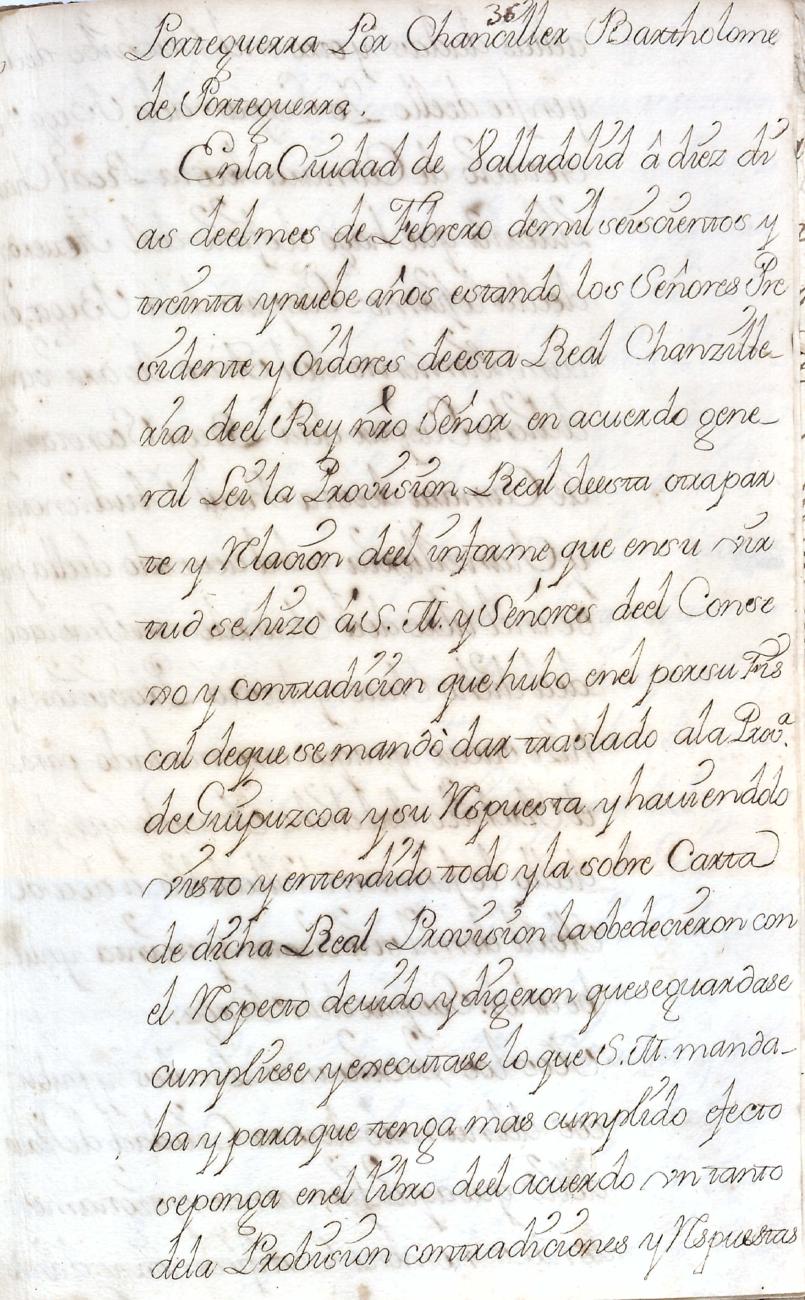 36
Porteguerra Por Chanciller Bartholome
de Porteguerra.
Enla Ciudad de Valladolid â diez di
as deel mes de Febrero de mil seiscientos y
treinta y nuebe años estando los Señores Pre
sidente y Oidores de esta Real Chanzille_
ria deel Rey nrõ Señor en acuerdo gene_
ral Lei la Provision Real de esta otra par
te y Rlacion deel informe que en su vir
tud se hizo á S. M. y Señores deel Conse
xo y contradicion que hubo en el por su Fis
cal de que se mandò dar traslado a la Prov.ª
de Guipuzcoa y su Rspuesta y haviendolo
visto y entendido todo y la sobre Carta
de dicha Real Provision la obedecieron con
el Rspecto devido y digeron que se guardase
cumpliese y executase lo que S. M. manda_
ba y para que tenga mas cumplido efecto
se ponga en el libro deel acuerdo vn tanto
de la Probision contradiciones y Rspuestas